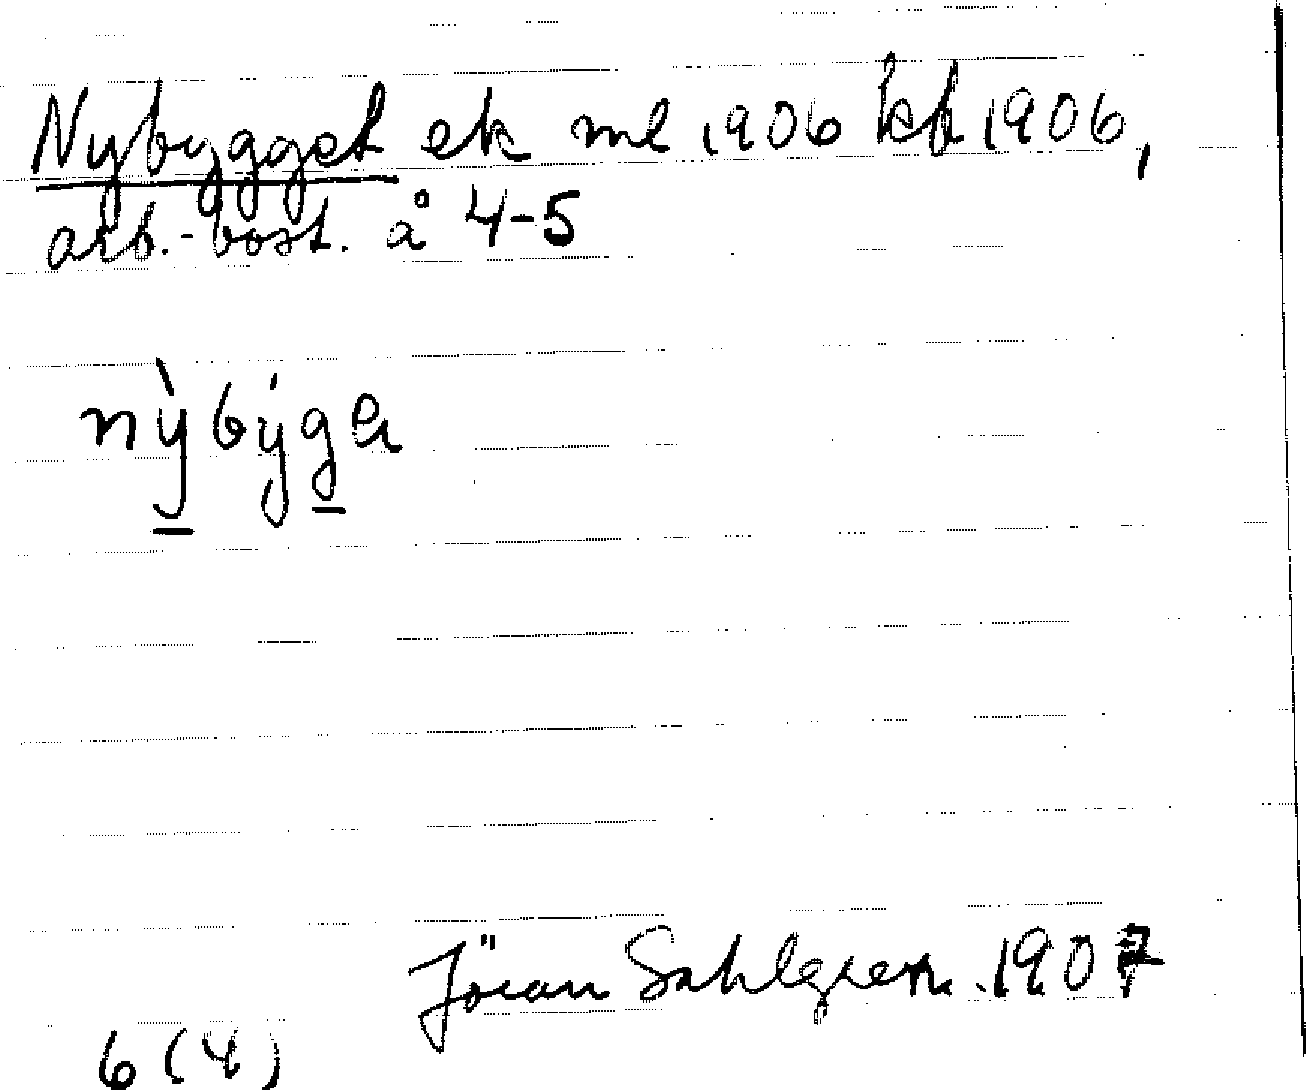 Nybygget ek ml 1906 kb 1906,
arb.-bost. å 4-5
nỳbýga
Jöran Sahlgren. 1907
6 (4)